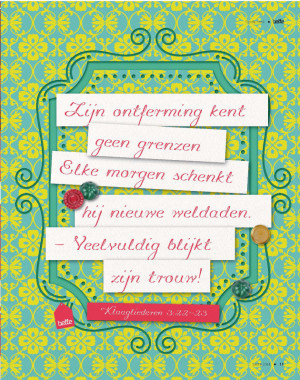 bette
Zijn ontferming kent
geen grenzen
Elke morgen schenkt
hij nieuwe weldaden.
– Veelvuldig blijkt
zijn trouw!
Klaagliederen 3:22-23
bette